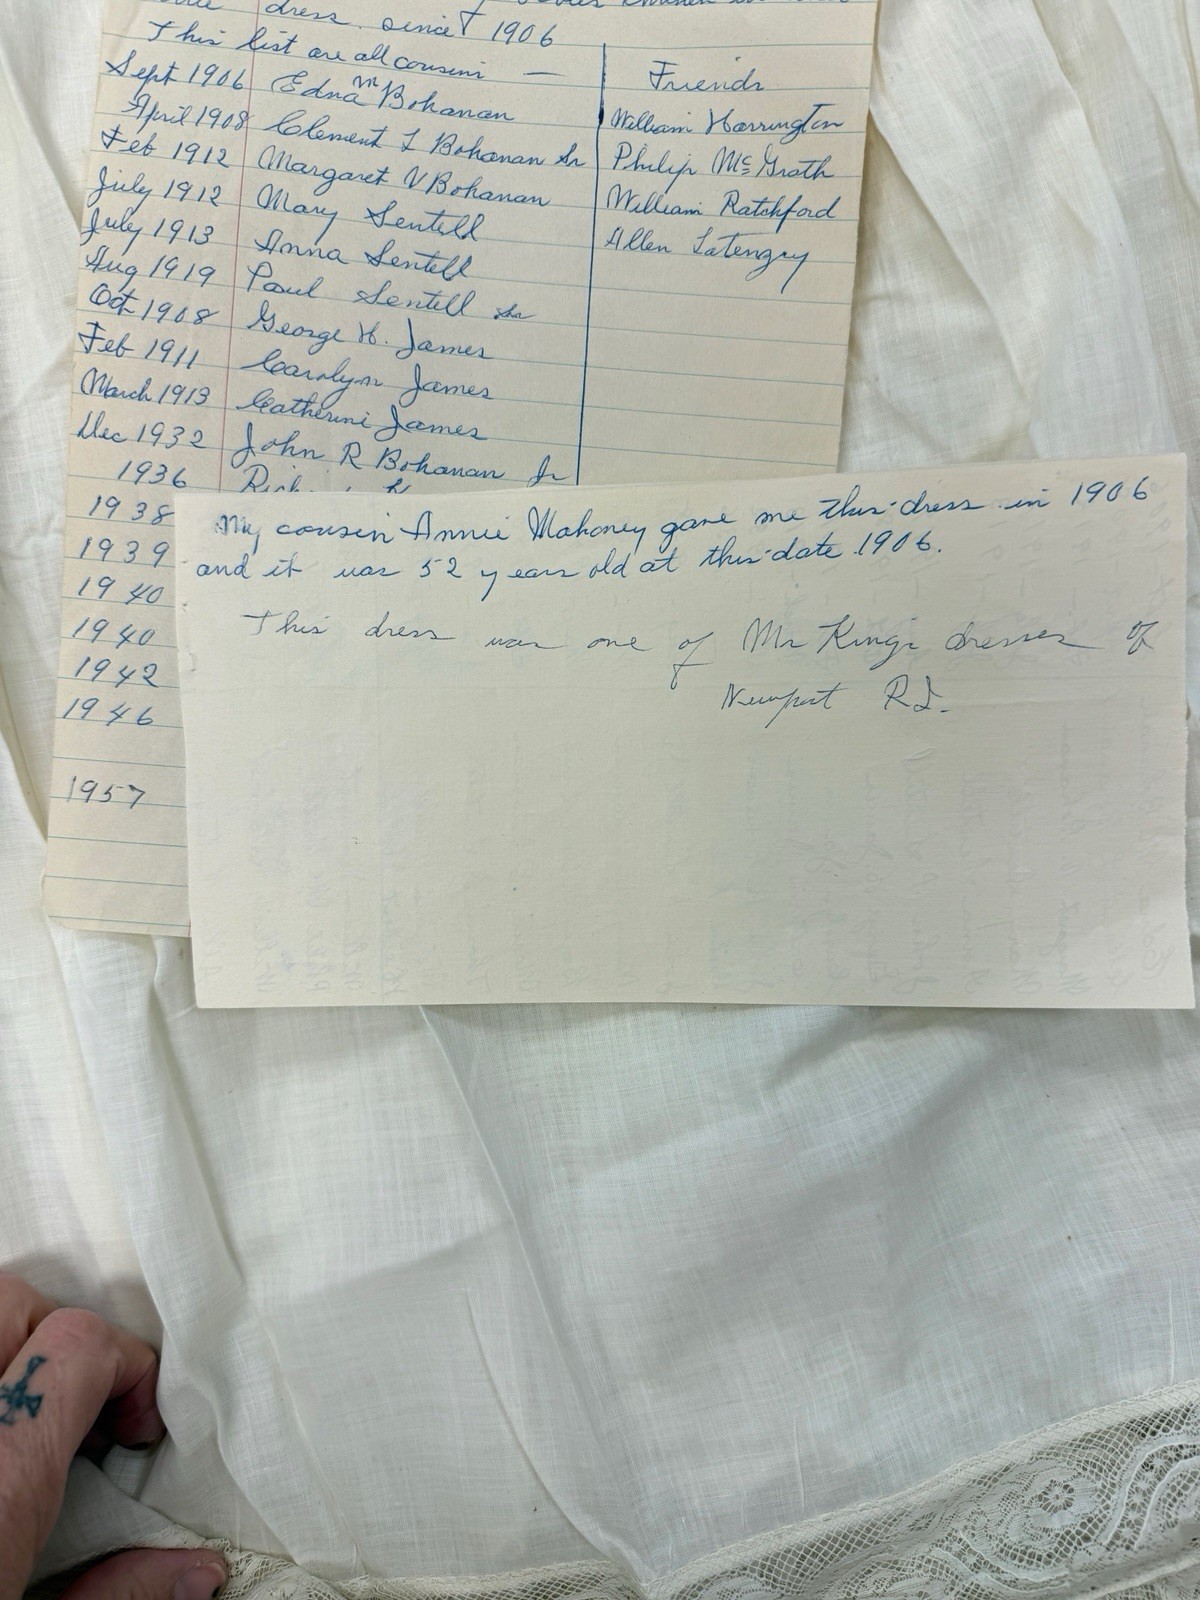 dress since 1906
This list are all cousins —
Sept 1906 Edna M Bohanan
April 1908 Clement L Bohanan Sr
Feb 1912 Margaret V Bohanan
July 1912 Mary Sentell
July 1913 Anna Sentell
Aug 1919 Paul Sentell Sr
Oct 1908 George H. James
Feb 1911 Carolyn James
March 1913 Catherine James
Dec 1932 John R Bohanan Jr
1936
1938
1939
1940
1940
1942
1946
1957
Friends
William Harrington
Philip McGrath
William Ratchford
Allen
My cousin Annie Mahoney gave me this dress in 1906
and it was 52 years old at this date 1906.
This dress was one of Mr King's dresses of
Newport R.I.